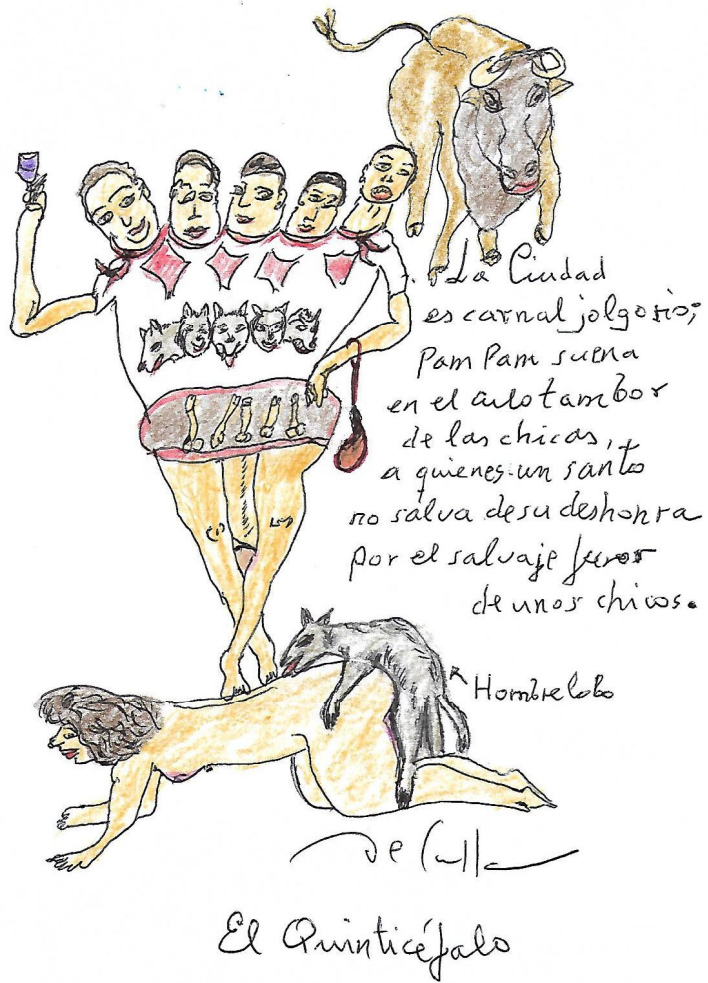 La Ciudad
es carnal jolgorio;
Pam Pam suena
en el culo tambor
de las chicas,
a quienes un santo
no salva de su deshonra
por el salvaje furor
de unos chicos.
Hombre lobo
El Quinticéfalo